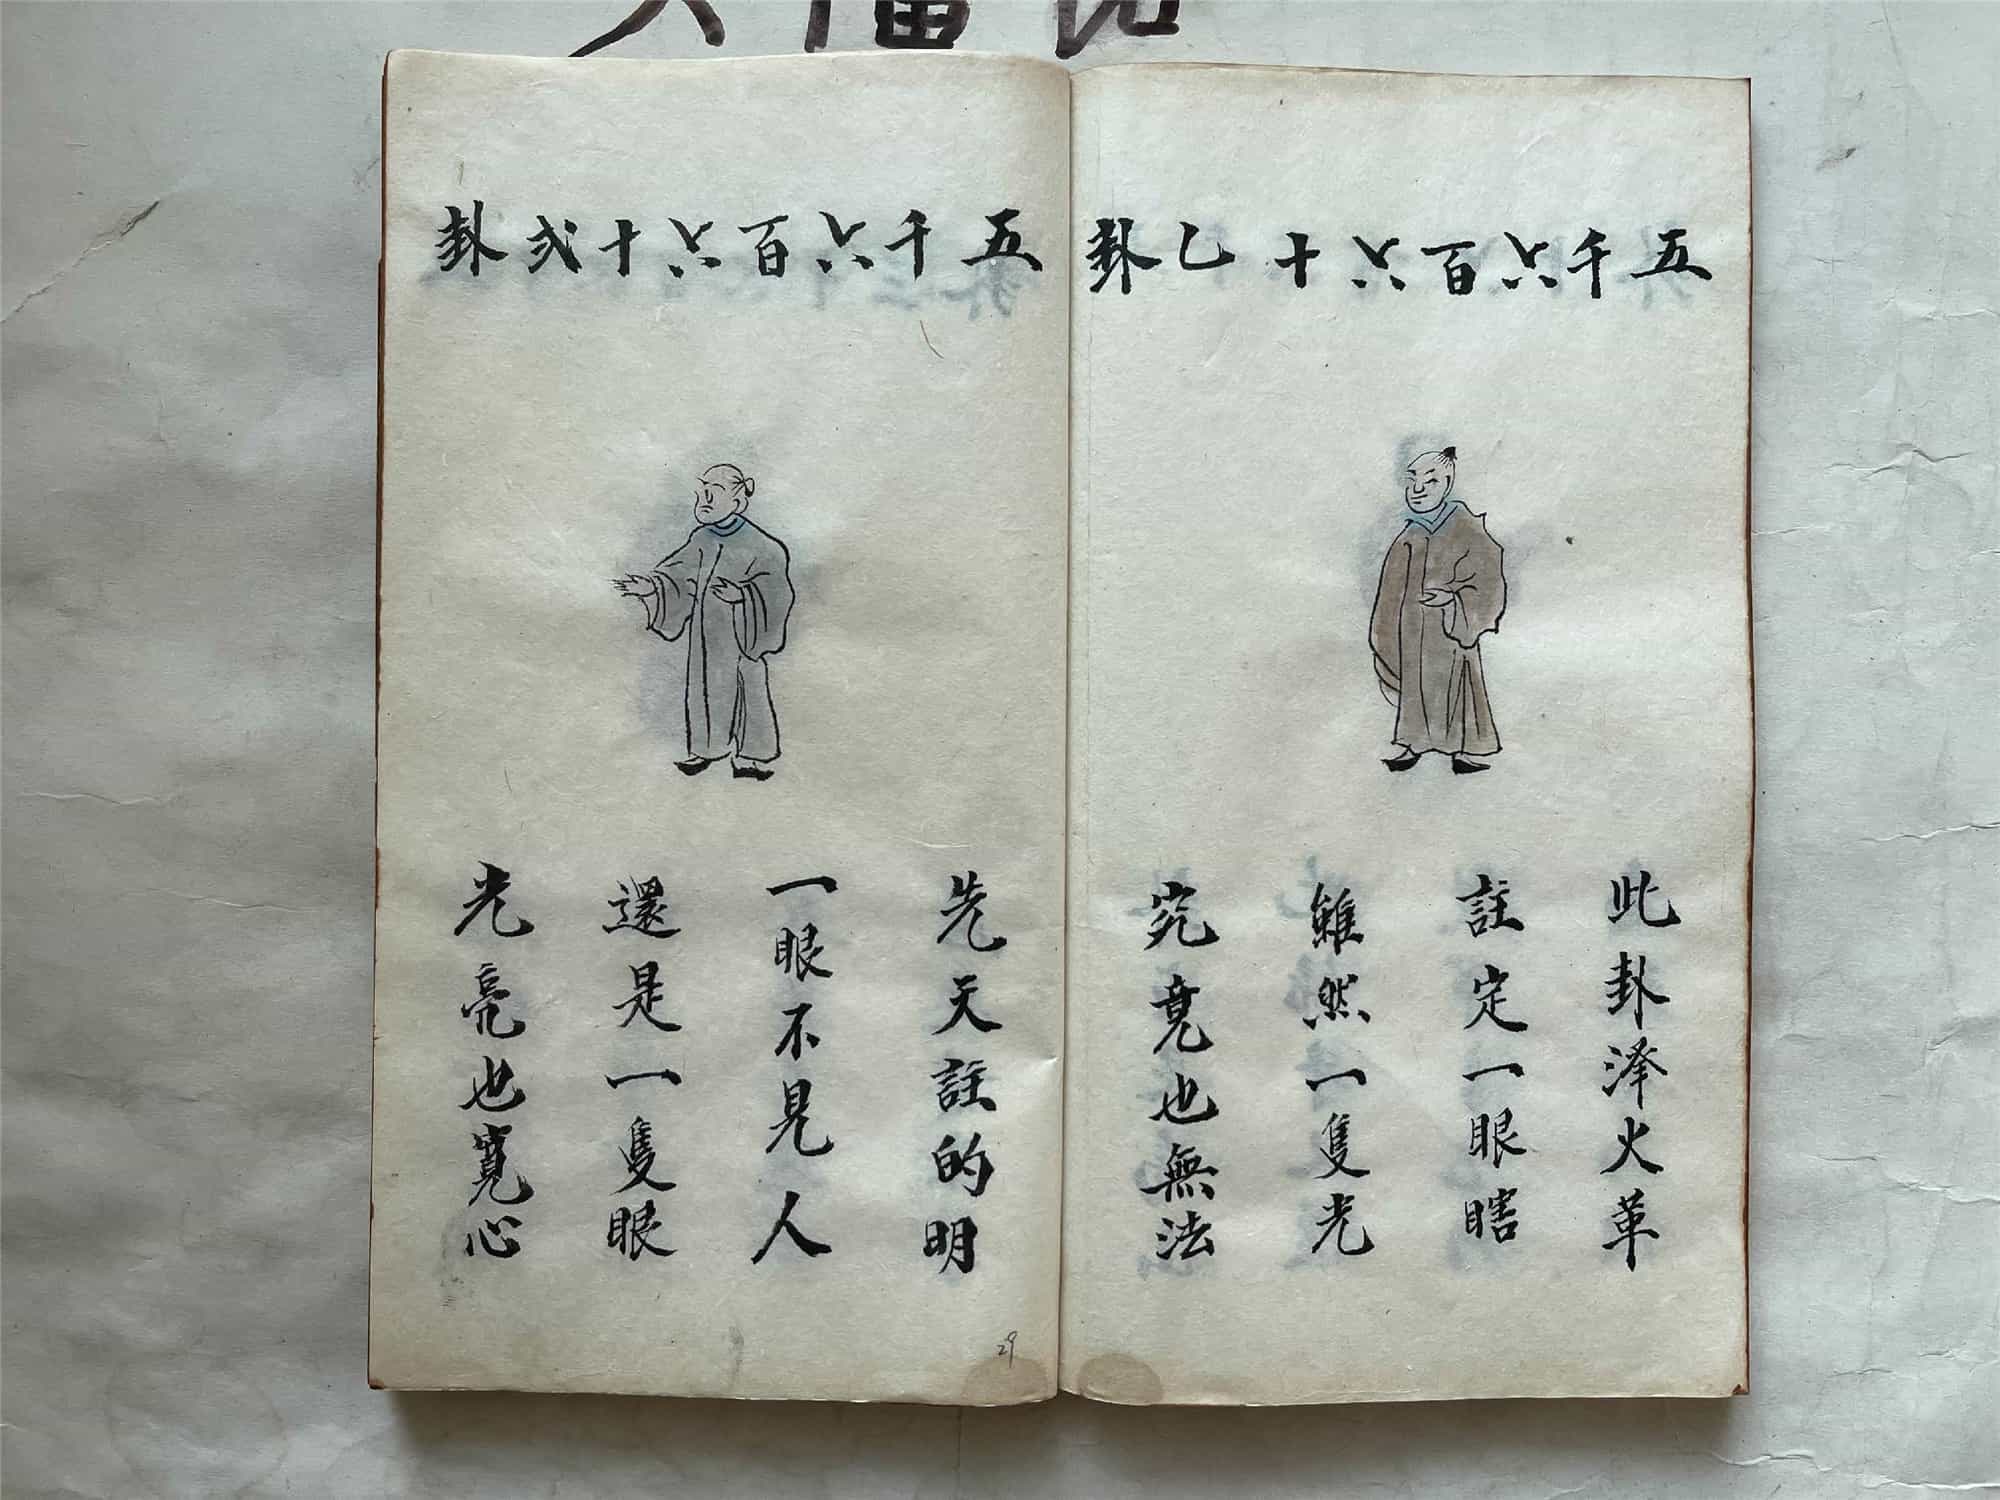 五千六百六十乙卦
此卦泽火革
註定一眼瞎
雖然一隻光
究竟也無法
五千六百六十弍卦
先天註的明
一眼不見人
還是一隻眼
光亮也寬心
29